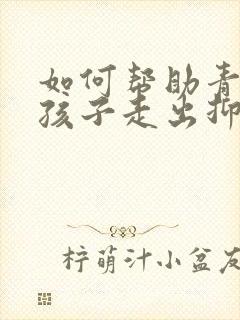 如何帮助青
孩子走出抑
柠萌汁小盆友